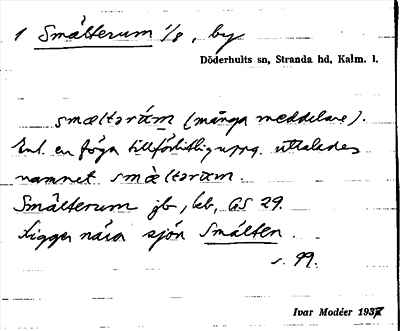 1 Smälterum 1/8, by
Döderhults sn, Stranda hd, Kalm. l.
smæltəräm (många meddelare).
Enl. en föga tillförlitlig uppg. uttalades
namnet smæltəräm.
Smälterum jb, kb, GS 29.
Ligger nära sjön Smälten.
s. 99.
Ivar Modéer 1937